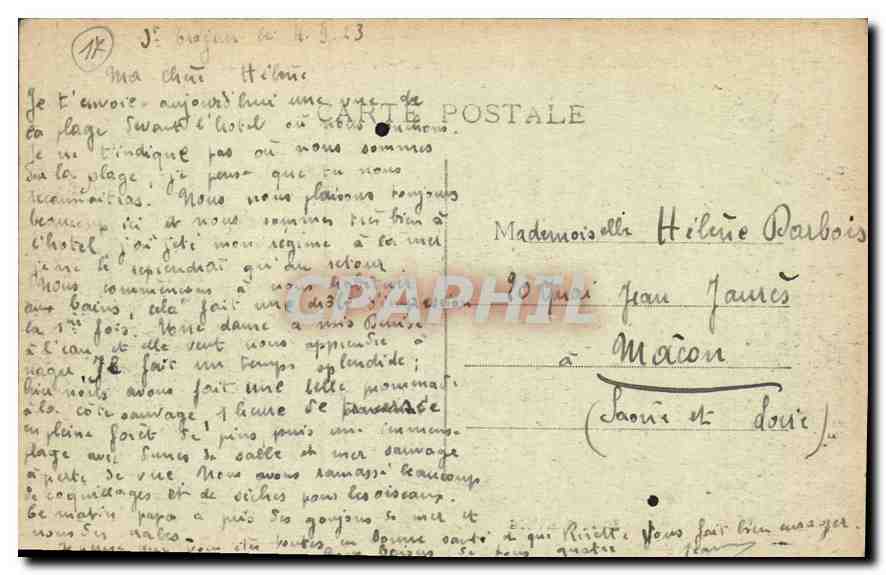 17
St le 4.9.23
Ma chère Hélène
CARTE POSTALE
Je t'envoie aujourd'hui une vue de
la plage devant l'hotel où nous
Je ne t'indique pas où nous sommes
sur la plage, je pense que tu nous
reconnaitras. Nous nous plaisons toujours
beaucoup ici et nous sommes très bien à
l'hotel, j'ai jeté mon régime à la mer
je ne le reprendrai qu'au retour
Nous commençons à nous
aux bains, cela fait une drôle d'impression
la 1ère fois. Une dame a mis Denise
à l'eau et elle veut nous apprendre à
nager. Il fait un temps splendide;
hier nous avons fait une belle promenade
à la côte sauvage 1 heure de
en pleine forêt de pins, puis une immense
plage avec dunes de sable et mer sauvage
à perte de vue. Nous avons ramassé beaucoup
de coquillages et de sèches pour les oiseaux.
Ce matin papa a pris des goujons de mer et
nous des
que vous êtes toutes en bonne santé et que Risette vous fait bien enrager.
Bons baisers de nous quatre
Mademoiselle Hélène Barbois
20 Quai Jean Jaurès
à Mâcon
(Saône et Loire)
CPAPHIL